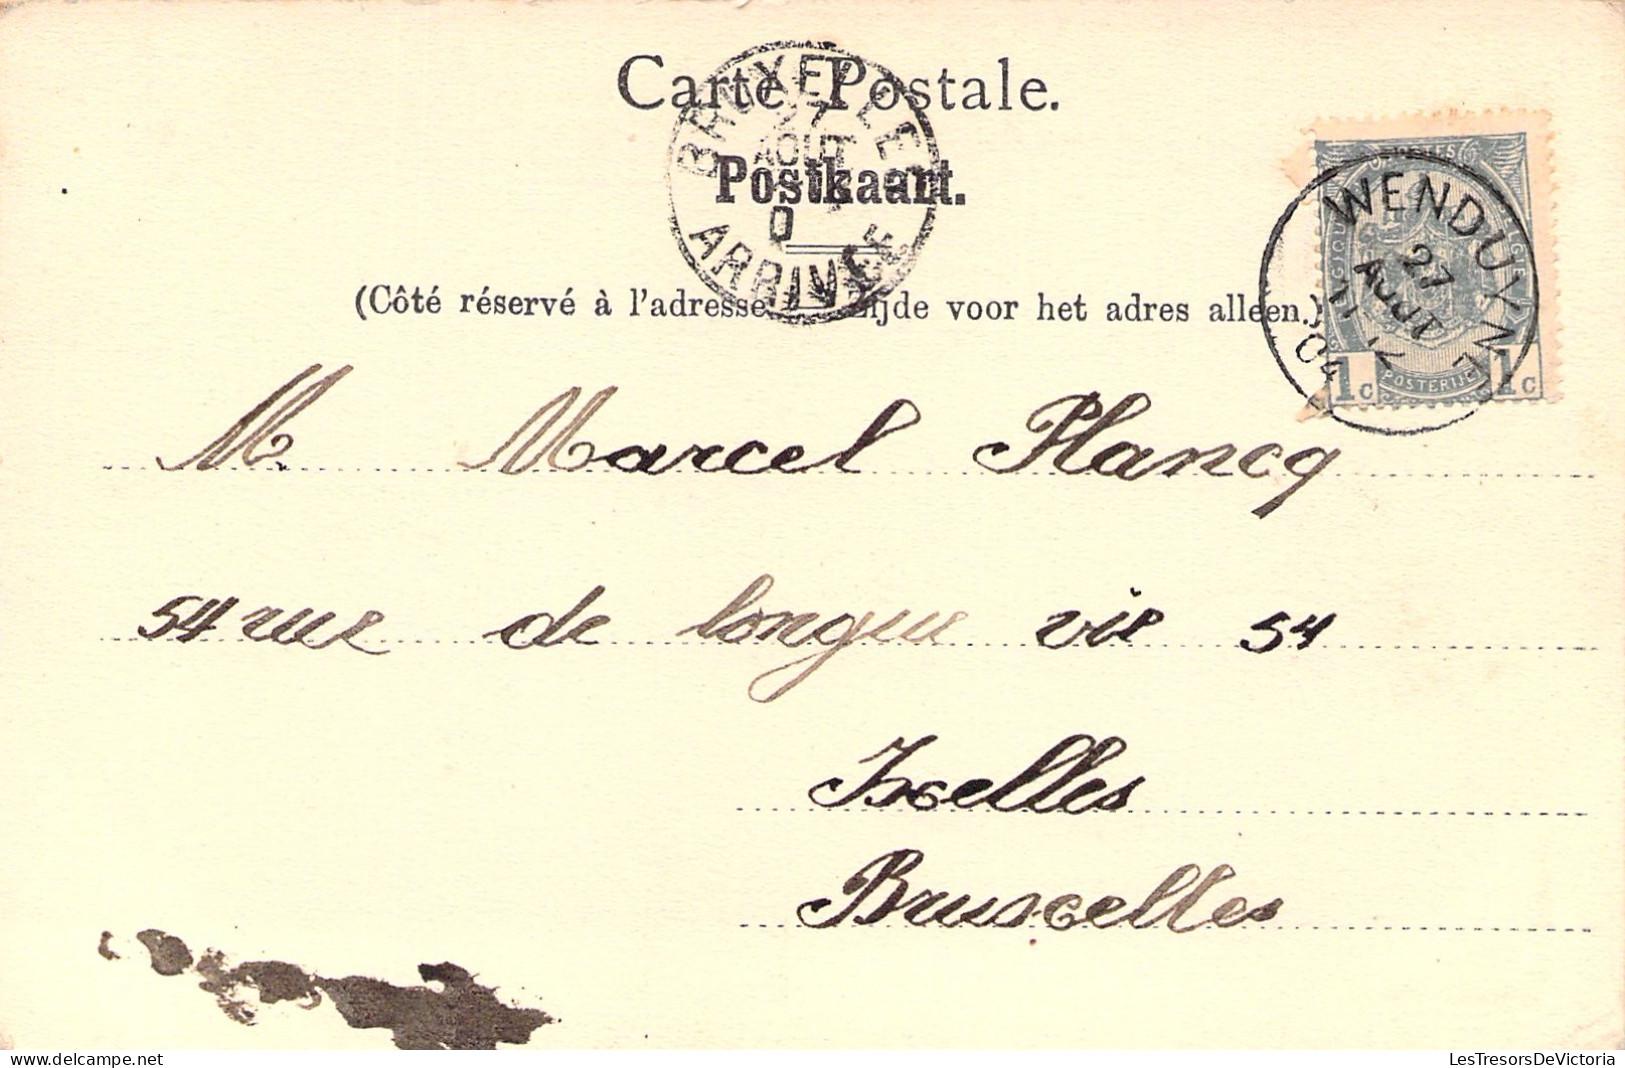 Carte Postale.
Postkaart.
BRUXELLES
27
AOUT
D
ARRIVÉE
(Côté réservé à l'adresse. — Zijde voor het adres alleen.)
WENDUYNE
27
AOUT
04
1c POSTERIJEN 1c
M. Marcel Plancq
54 rue de longue vie 54
Ixelles
Bruxelles
LesTresorsDeVictoria
delcampe.net